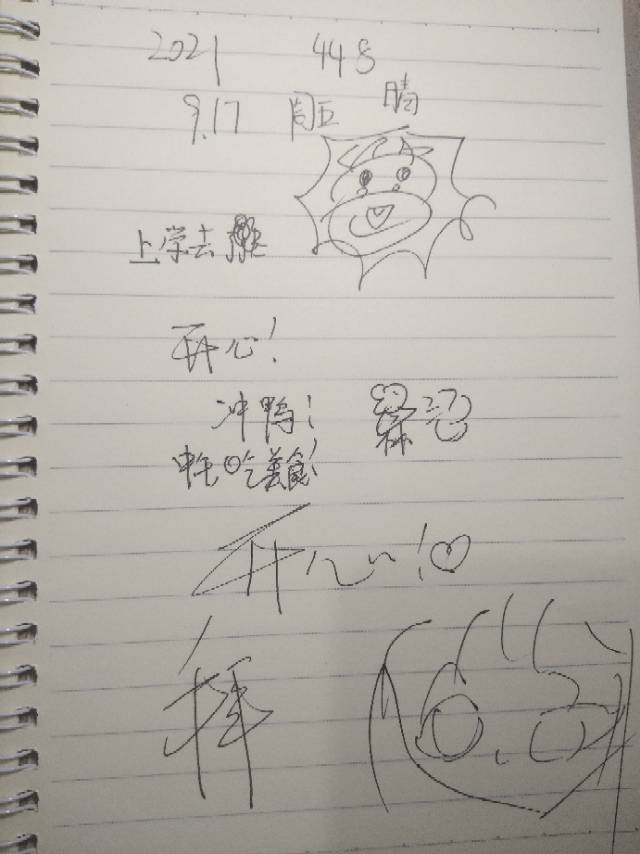 2021 448
9.17 周五 晴
上学去
开心!
冲鸭!
中午吃美食!
开心!
拜